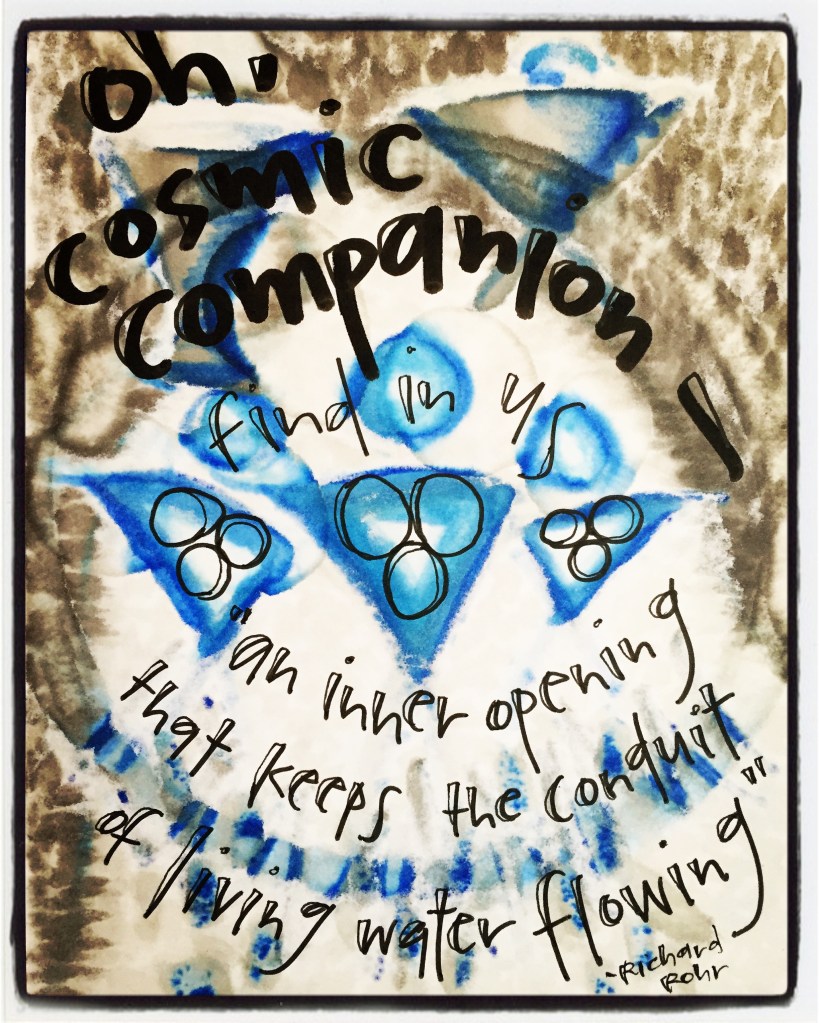 oh,
cosmic
companion!
find in us
"an inner opening
that keeps the conduit
of living water flowing"
-Richard
Rohr